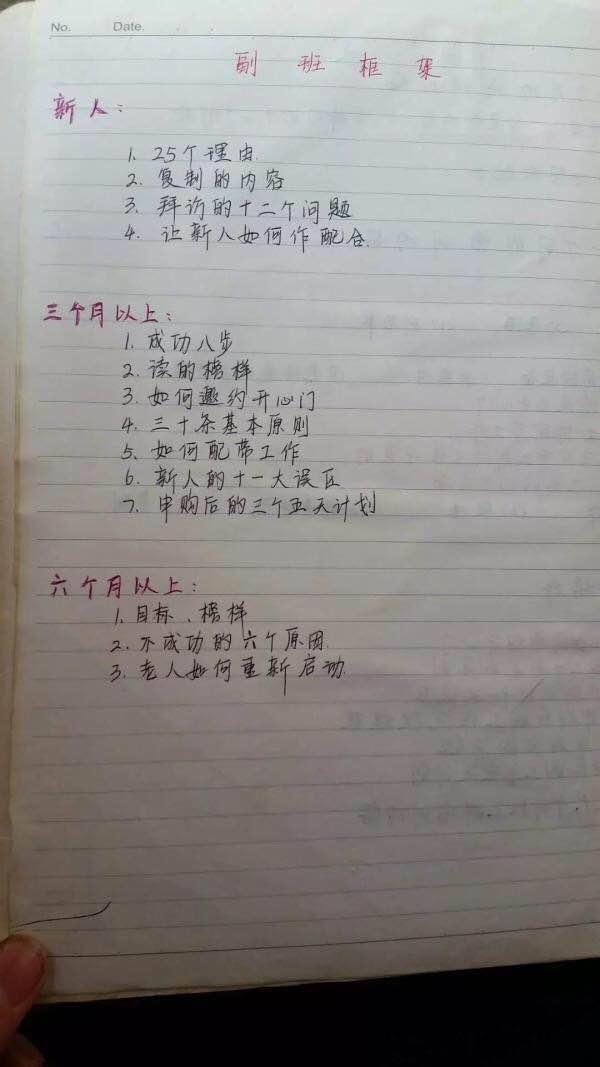 No. Date.
副班框架
新人：
1. 25个理由.
2. 复制的内容
3. 拜访的十二个问题
4. 让新人如何作配合.
三个月以上：
1. 成功八步
2. 读的榜样
3. 如何邀约开心门
4. 三十条基本原则
5. 如何配带工作
6. 新人的十一大误区
7. 申购后的三个五天计划
六个月以上：
1. 目标、榜样
2. 不成功的六个原因.
3. 老人如何重新启动.